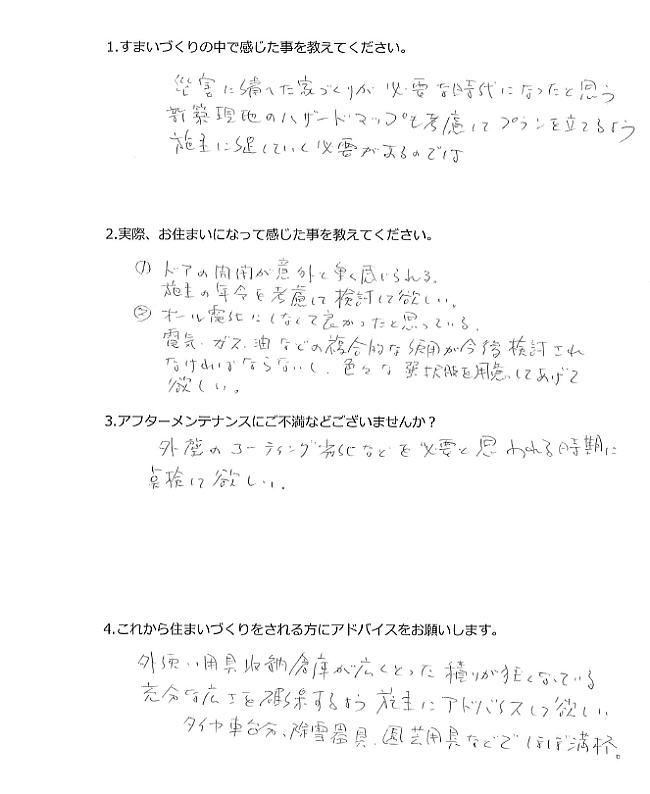 1.すまいづくりの中で感じた事を教えてください。
災害に備えた家づくりが必要な時代になったと思う
新築現地のハザードマップも考慮してプランを立てるよう
施主に促していく必要があるのでは
2.実際、お住まいになって感じた事を教えてください。
① ドアの開閉が意外と重く感じられる。
施主の年令を考慮して検討して欲しい。
② オール電化にしなくて良かったと思っている。
電気・ガス・油などの複合的な使用が今後検討され
なければならないし、色々な選択肢を用意してあげて
欲しい。
3.アフターメンテナンスにご不満などございませんか？
外壁のコーティング劣化などを必要と思われる時期に
点検して欲しい。
4.これから住まいづくりをされる方にアドバイスをお願いします。
外使い用具収納倉庫が広くとった積りが狭くなっている
充分な広さを確保するよう施主にアドバイスして欲しい
タイヤ車台分、除雪器具、園芸用具などでほぼ満杯。